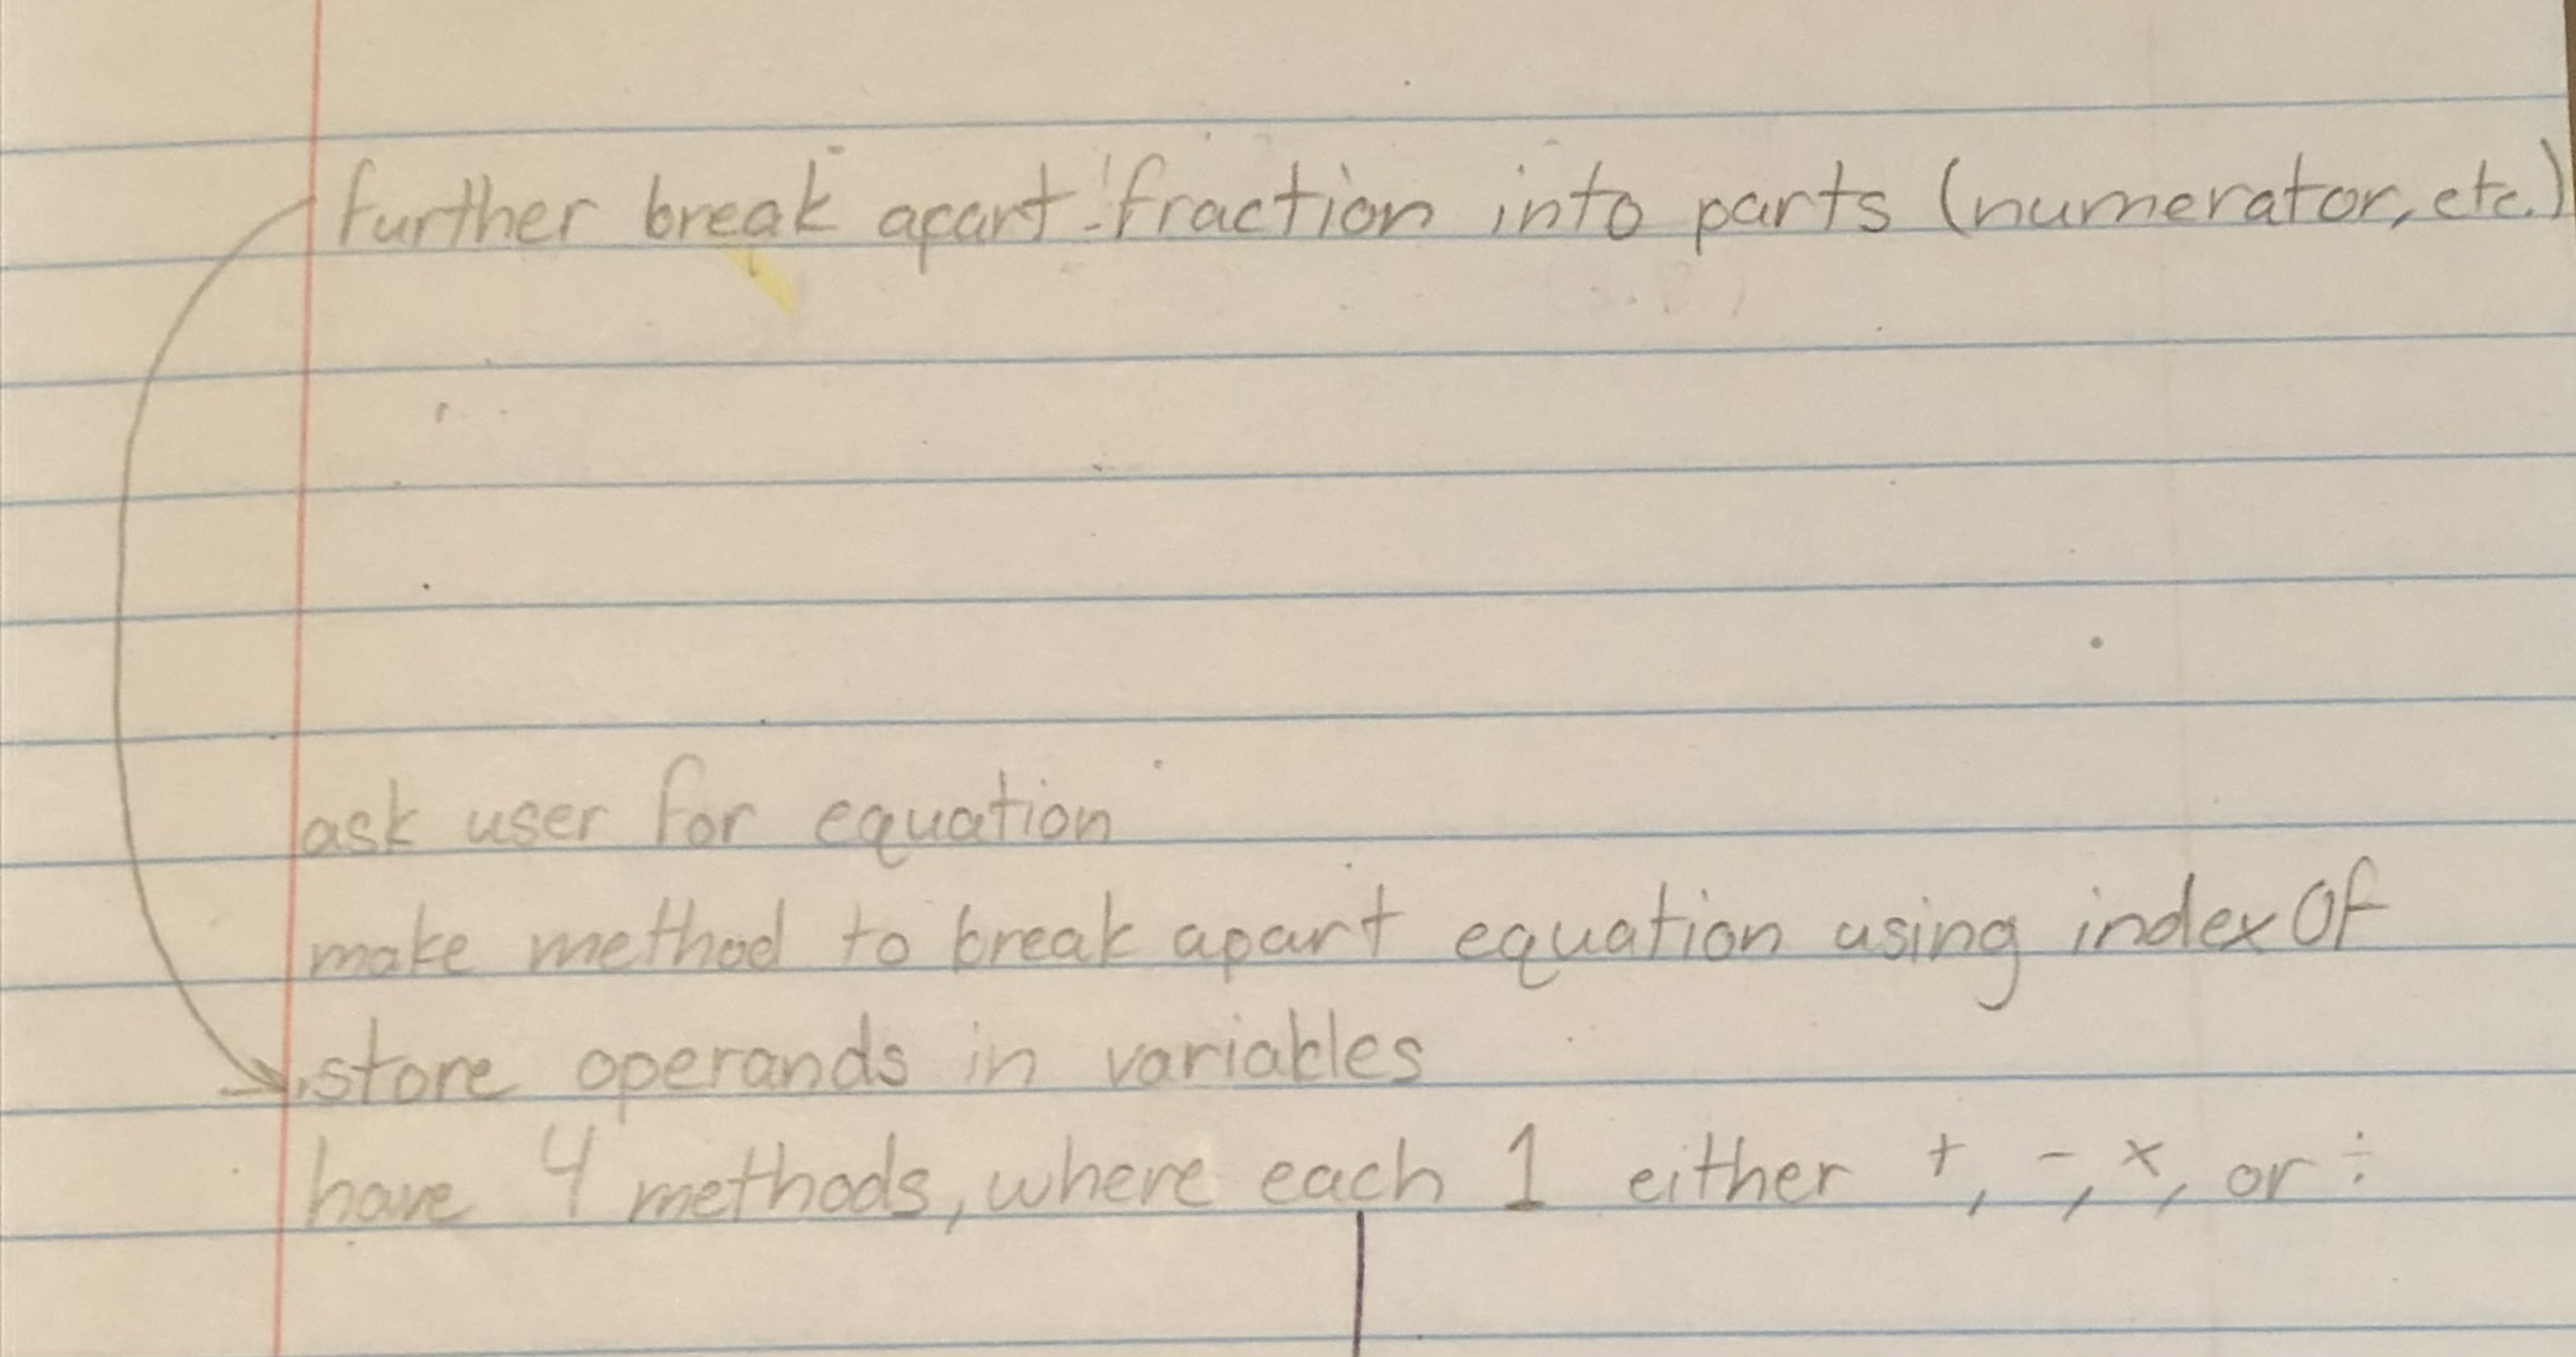 further break apart fraction into parts (numerator, etc.)
ask user for equation
make method to break apart equation using indexOf
store operands in variables
have 4 methods, where each 1 either +, -, x, or ÷